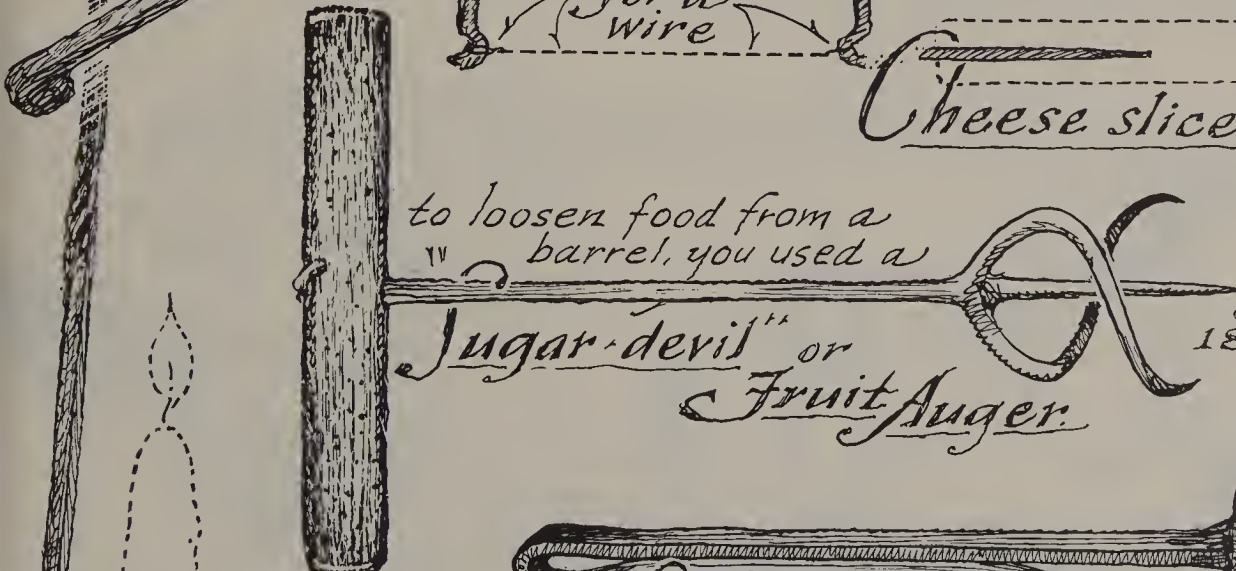 for a
wire
Cheese slice
to loosen food from a
barrel, you used a
"Sugar-devil" or
Fruit Auger.
18